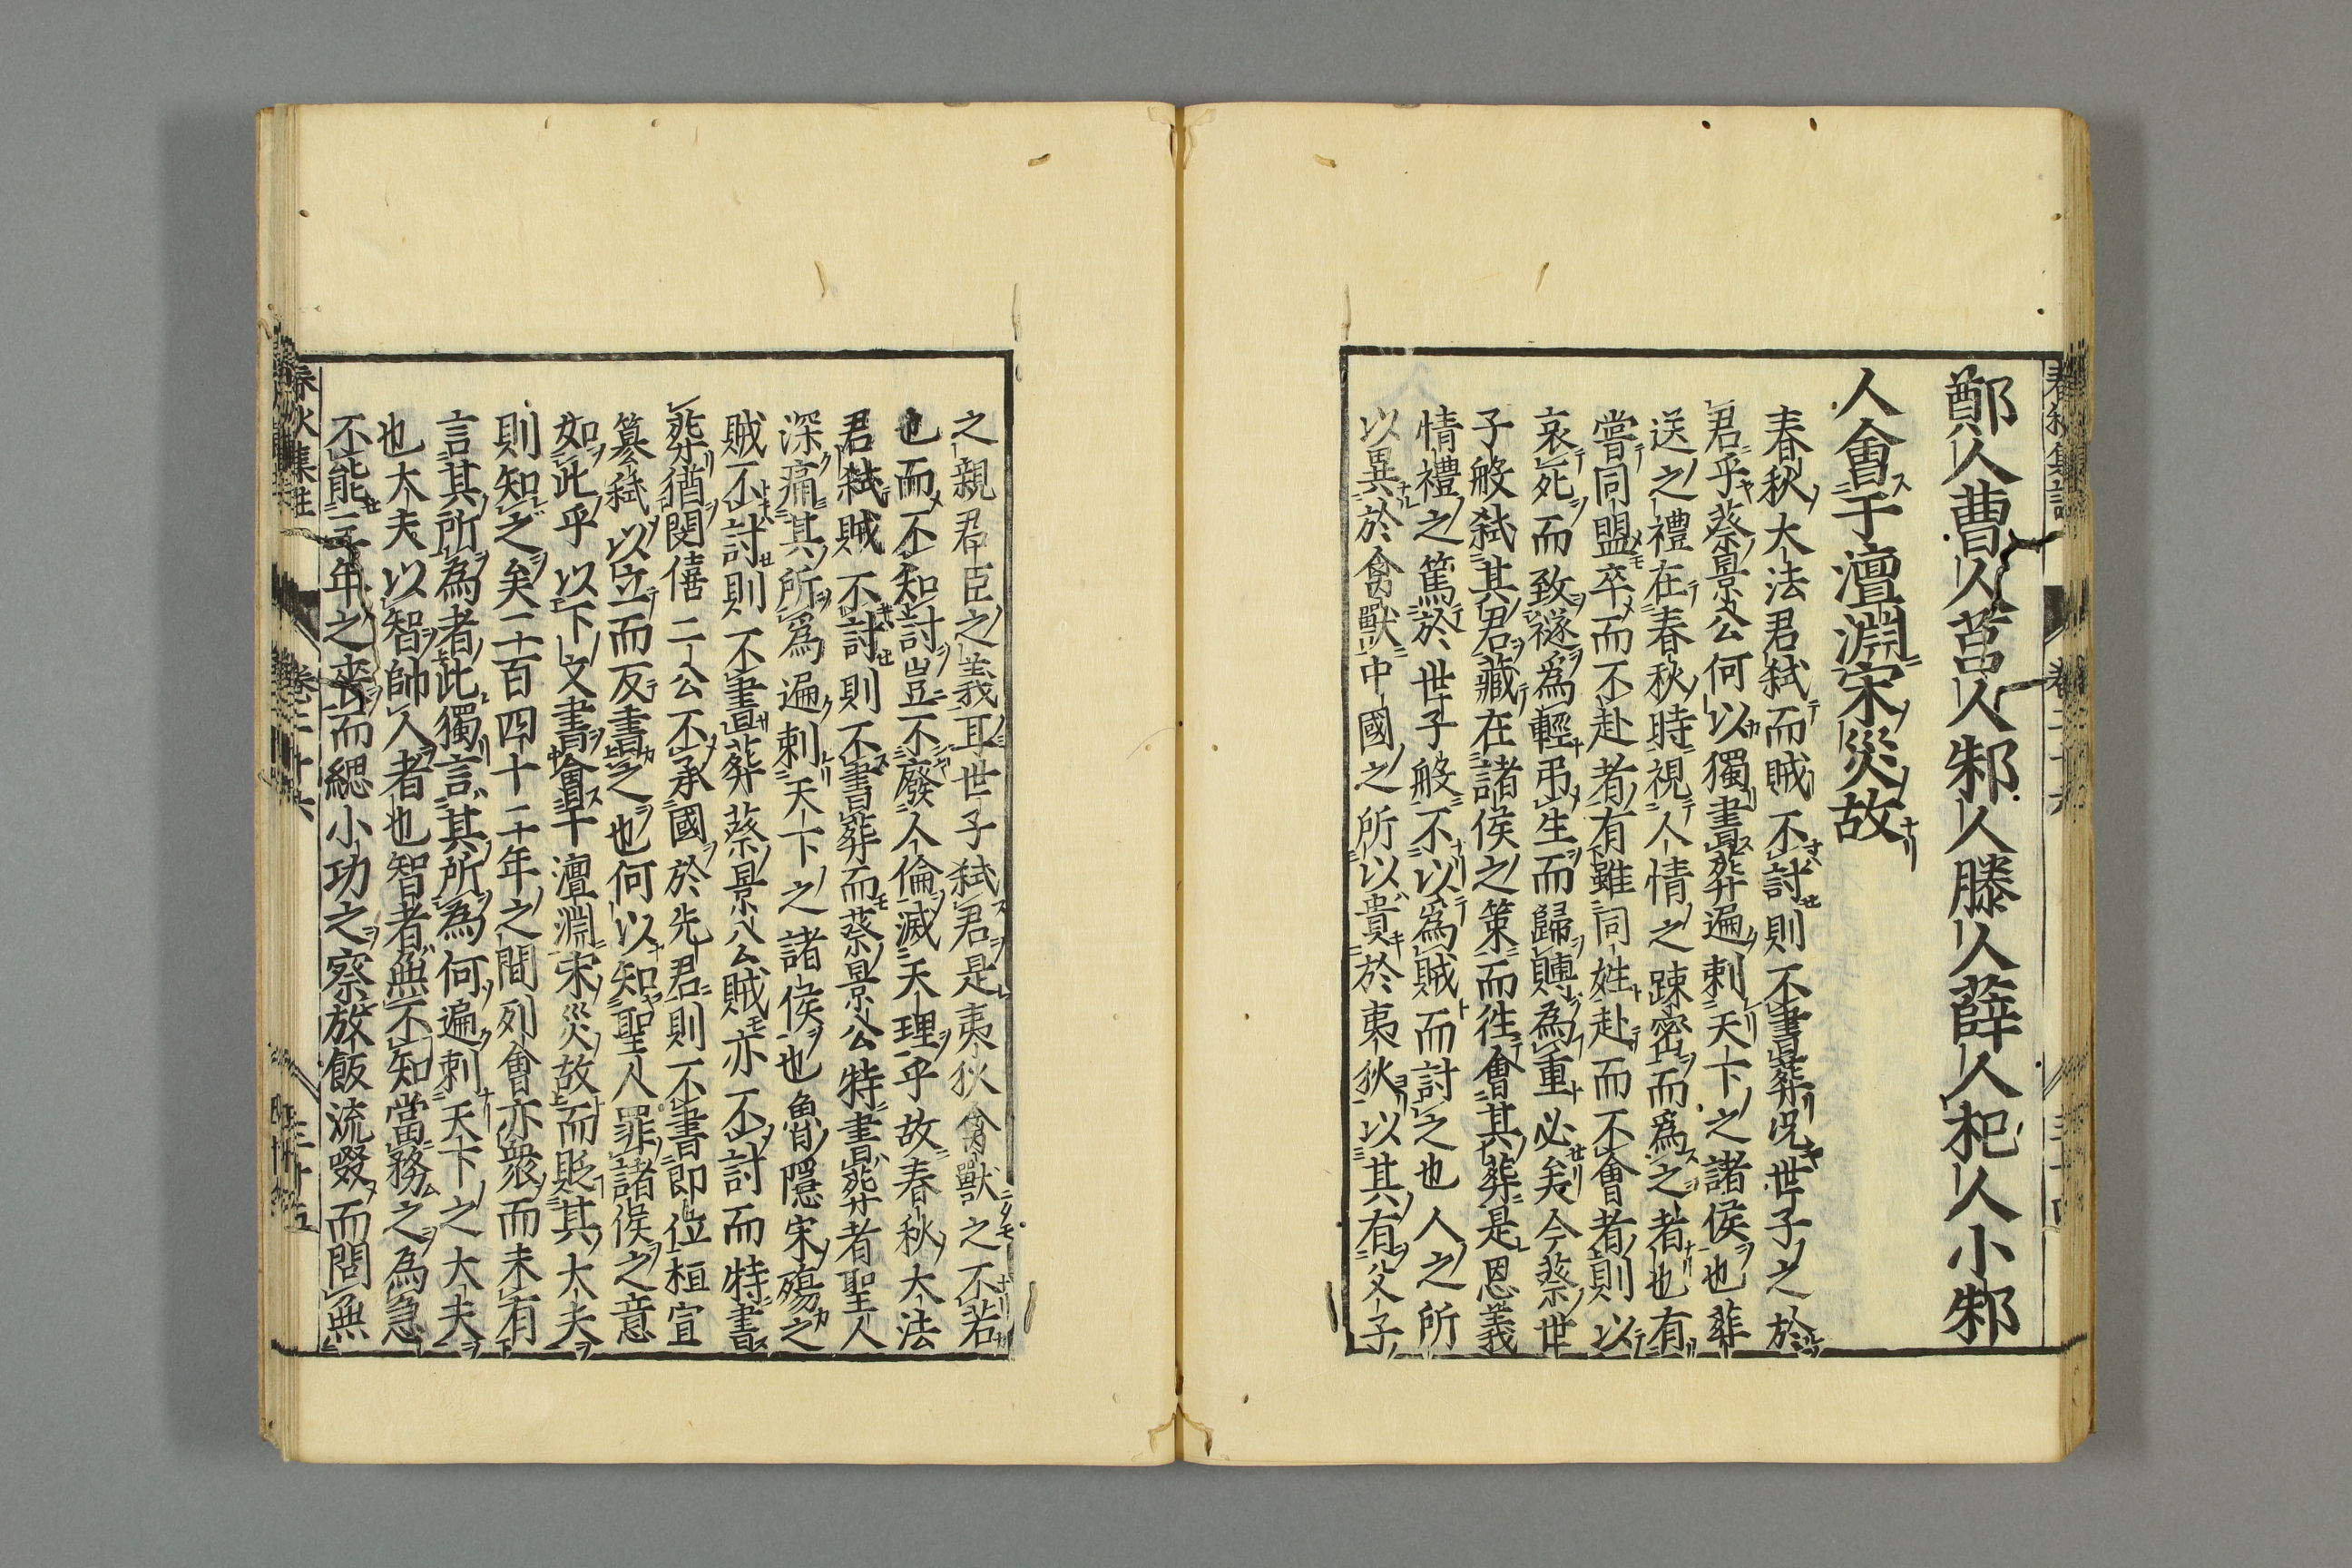 鄭人曹人莒人邾人滕人薛人杞人小邾
人會于澶淵宋災故
春秋大法君弑而賊不討則不書葬况世子之於
君乎蔡景公何以獨書葬遍刺天下之諸侯也葬
送之禮在春秋時視人情之踈密而爲之者也有
嘗同盟卒而不赴者有雖同姓赴而不會者則以
哀死而致襚爲輕弔生而歸賻為重必矣今蔡世
子般弑其君藏在諸侯之策而徃會其葬是恩義
情禮之篤於世子般不以爲賊而討之也人之所
以異於禽獸中國之所以貴於夷狄以其有父子
之親君臣之義耳世子弑君是夷狄禽獸之不若
也而不知討豈不廢人倫滅天理乎故春秋大法
君弑賊不討則不書葬而蔡景公特書葬者聖人
深痛其所爲遍刺天下之諸侯也魯隠宋殤之
賊不討則不書葬蔡景公賊亦不討而特書
葬猶閔僖二公不承國於先君則不書即位桓宣
篡弑以立而反書之也何以知聖人罪諸侯之意
如此乎以下文書會于澶淵宋災故而貶其大夫
則知之矣二百四十二年之間列會亦衆而未有
言其所為者此獨言其所為何遍刺天下之大夫
也大夫以智帥人者也智者無不知當務之為急
不能三年之喪而緦小功之察放飯流啜而問無
春秋集註 卷二十六 三十五